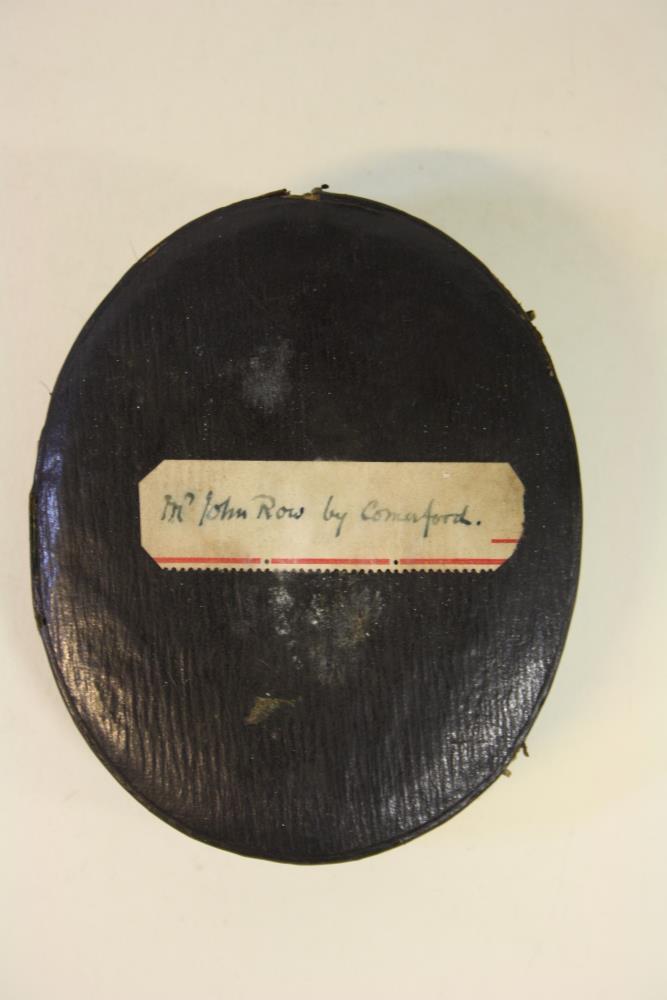 Mr John Row by Comerford.